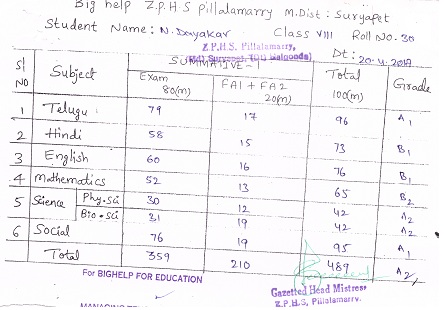 Big help Z.P.H.S pillalamarry m.Dist : Suryapet
Student Name: N. Dayakar Class VIII Roll No. 30
Z.P.H.S. Pillalamarry,
Dt: 20-4-2017
Sl NO Subject SUMMATIVE - Total Grade
Exam 80(m) FA1 + FA2 20(m) 100(m)
1 Telugu 79 17 96 A1
2 Hindi 58 15 73 B1
3 English 60 16 76 B1
4 Mathematics 52 13 65 B2
5 Science Phy.sci 30 12 42 A2
Bio.sci 31 19 42 A2
6 Social 76 19 95 A1
Total 359 210 489 A2
For BIGHELP FOR EDUCATION
Gazetted Head Mistress
Z.P.H.S, Pillalamarry.